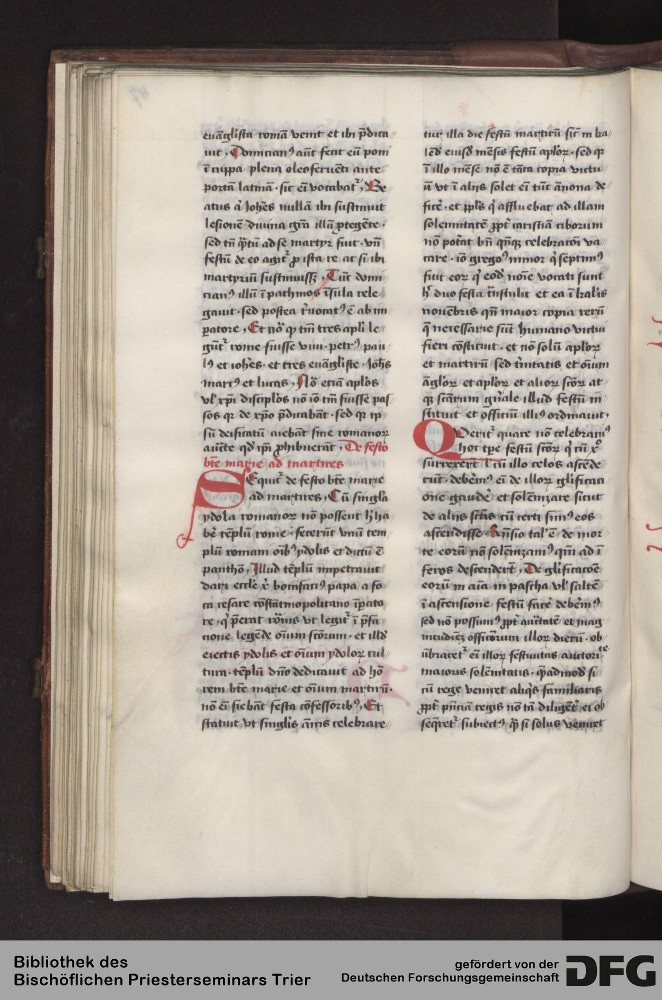 euāglista romā venit et ibi p̄dica
uit, Domician⁹ aūt fecit eū poni
ī cuppa plena oleo feruēti ante
portā latinā · sic eī vocabat͛, Be
atus aͥ Joh̄es nullā ibi sustinuit
lesionē diuina gr̄a illū ꝓtegēte ·
sed tn̄ q̄tū ad se martyr fuit · vn̄
festū de eo agit͛ ꝓ ista re ac si ibi
martyriū sustinuiss͛, Tūc domi
cian⁹ illū ī pathmos īsula rele
gauit · sed postea r̄uocat⁹ ē ab im
peratore, Et no͛ qͥ tm̄ tres apl̄i le
gūt͛ rome fuisse viui · petr⁹ pau
l⁹ et ioh̄es · et tres euāgliste · Joh̄s
marc⁹ et lucas, Nō eciā apl̄os
vl͛ xp̄i disciplos nō iō tm̄ fuisse pas
sos qꝛ de xp̄o p̄dicabāt · sed qꝛ ip
su deificatū aiebāt sine romanoꝝ
aūcte qd̄ ip̄i ꝓhibuerāt, De festo
bt̄e marie ad martires
Sequit͛ de festo bt̄e marie
ad martires, Cū singl̄a
ydola romanoꝝ nō possent h̄ha
be͛ tēplū rome · fecerūt vnū tem
plū romam oīb⁹ ydolis et dictū ē
pantheō, Illud tēplū impetrauit
dari eccl̄e x͛ bonifaci⁹ papa a fo
ca cesare cōstātinopolitano īpato
re · qͥ p̄erat ro͛nis vt legit͛ ī p̄fa
cione legēde om̄iū scōrum · et illd͛
eiectis ydolis et om̄iū ydoloꝝ cul
tura · tēplū dn̄o dedicauit ad hō
rem bt̄e marie et om̄iū martirū ·
nō ē siebāt festa cōfessorib⁹, Et
statuit vt singl̄is annis celebrare
tur illa die festū martirū sic͛ in ka
lēd͛ eiusd͛ mēsis festū apl̄oꝝ · sed qꝛ
ī illo mēse nō ē tāta copia victu
ū vt ī alijs solet eī tūc ānona de
fice͛ · et ppl̄s qͥ affluebat ad illam
solemnitatē ꝓpt͛ caristiā ciborum
nō pot͛at bn̄ qn̄qꝫ celebracōi va
care · iō grego⁹ minor qͥ septim⁹
fuit eoꝝ qͥ eod͛ noīe vocati sunt
h͛ duo festa ī͛stulit et ea ī kal͛is
nouēbris qn̄ maior copia rerū
q̄ necessarie sūt humano victui
fieri cōstituit · et nō solū apl̄oꝝ
et martirū sed t͛nitatis et om̄iū
āgl̄oꝝ et apl̄oꝝ et alioꝝ scōꝝ at
qꝫ scārum gn̄ale illud festū in
stituit et officiū illi⁹ ordinauit,
Querit͛ quare nō celebram⁹
hoc tp̄e festū scōꝝ qͥ cū x⁰
surrexert̄ l͛ cū illo celos ascēde
rūt · debēm⁹ eī de illoꝝ glificati
one gaude͛ et solēnizare sicut
de alijs sc͛is cū certi sim⁹ eos
ascēdisse · R͛nsio tal͛ ē · de mor
te eorū nō solēnizam⁹ qm̄ ad ī
feros descenderēt, De glificacōe
eorū in aīa in pascha vl͛ saltē
ī ascensione festū face͛ debēm⁹
sed nō possum⁹ ꝓpt͛ autātē et mag
nitudīez officiorum illoꝝ dierū · ob
ūbraret͛ eī illoꝝ festiuitas autoriᵗᵉ
maioris solēnitatis · q̄admod͛ si
cū rege veniret aliqͥs familiaris
ꝓpt͛ pn̄ciā regis nō tā diligēt͛ et ob
seqret͛ subiect⁹ qͣ si solus veniret
Bibliothek des
Bischöflichen Priesterseminars Trier
gefördert von der
Deutschen Forschungsgemeinschaft
DFG